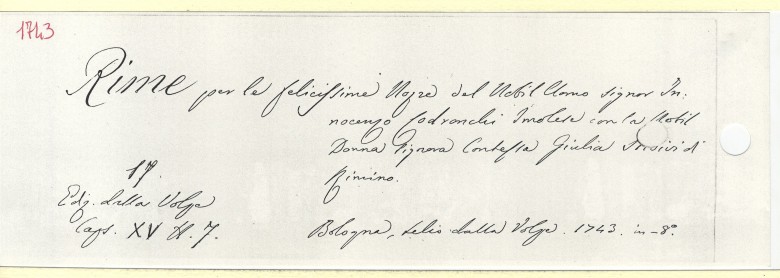 1743
Rime per le felicissime Nozze del Nobil Uomo signor In:
nocenzo Codronchi Imolese con la Nobil
Donna Signora Contessa Giulia di
Rimino.
Ediz. dalla Volpe
Caps. XV N. 7.
Bologna, Lelio dalla Volpe. 1743. in-8º.